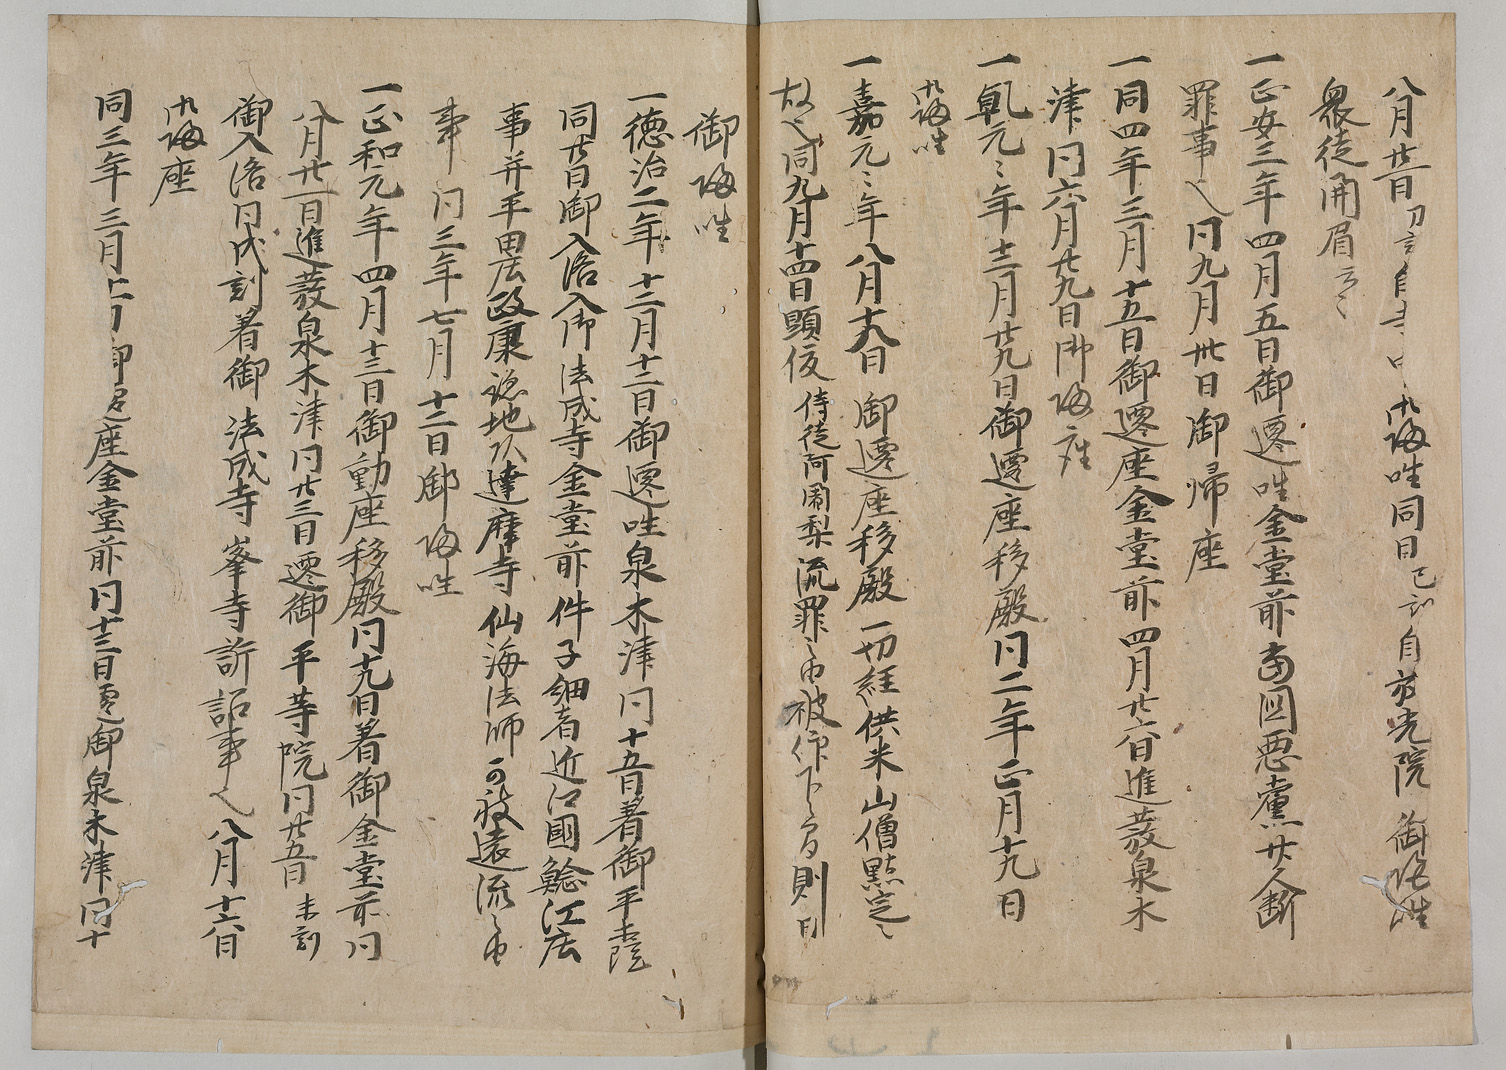 八月廿五日 刀剋自寺中御帰座同日巳剋自放光院御帰座
衆徒開眉云々
一正安三年四月五日御遷座金堂前当国悪党廿人断
罪事也同九月卅日御帰座
一同四年三月十五日御遷座金堂前四月廿六日進發泉木
津同六月廿九日御帰座
一乾元々年十二月廿九日御遷座移殿同二年正月十九日
御帰座
一嘉元々年八月十九日御遷座移殿一切経供米山僧點定之
故也同九月十四日顕俊侍従阿闍梨流罪之由被仰下之間則日
御帰座
一徳治二年十二月十二日御遷座泉木津同十五日著御平等院
同廿日御入洛入御法成寺金堂前件子細者近江国鯰江庄
事并平田庄政康認地以達摩寺仙海法師可被遠流之由
事同三年七月十二日御帰座
一正和元年四月十三日御動座移殿同十九日著御金堂前同
八月廿一日進發泉木津同廿三日遷御平等院同廿五日未刻
御入洛同戌刻著御法成寺峯寺訴詔事也八月十六日
御帰座
同三年三月十一日御遷座金堂前同十三日遷御泉木津同十